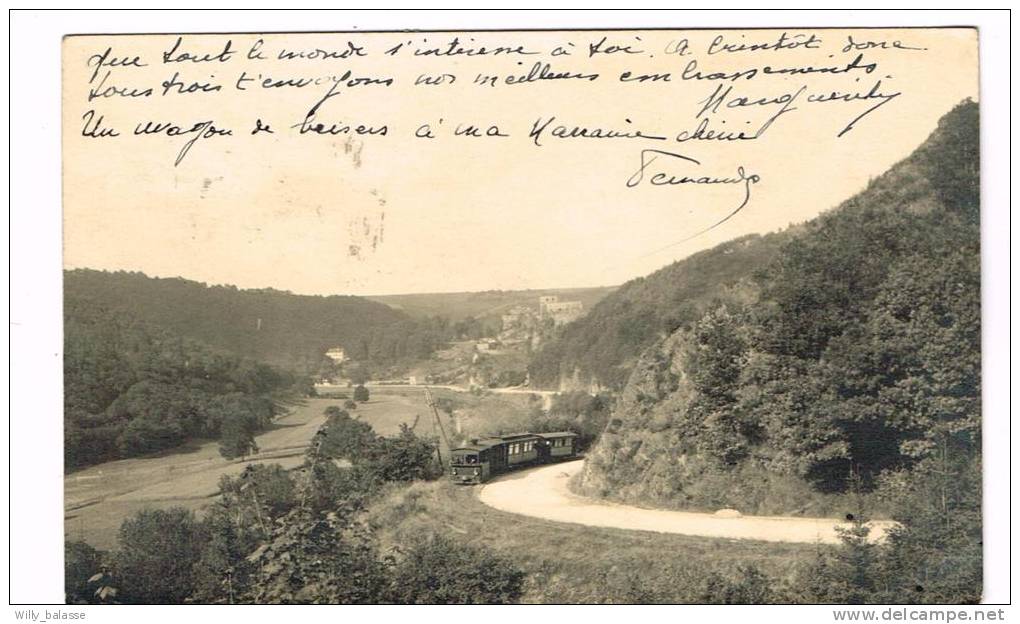 que tout le monde s'interesse à toi. A bientôt donc
tous trois t'envoyons nos meilleurs embrassements.
Marguerite
Un wagon de baisers à ma Marraine chérie
Fernande
Willy_balasse
www.delcampe.net